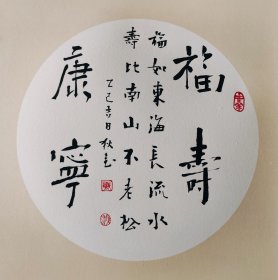 福壽
福如東海長流水
壽比南山不老松
乙巳吉日秋
康寧